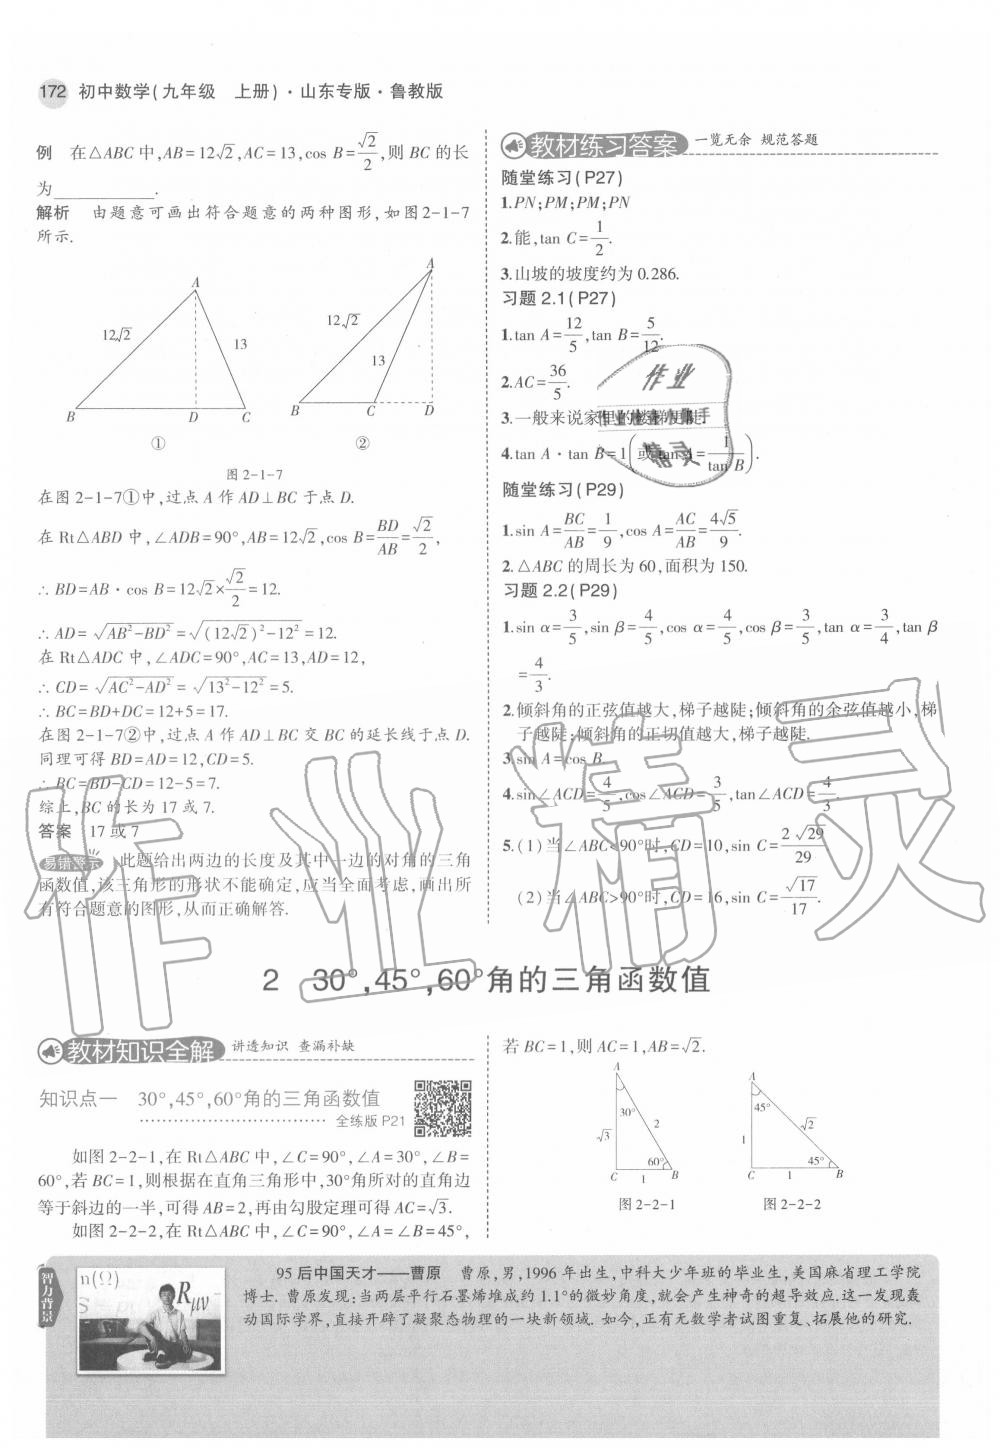 172 初中数学(九年级 上册)·山东专版·鲁教版
例 在△ABC中,AB=12√2,AC=13,cos B=√2/2,则BC的长
为____________.
解析 由题意可画出符合题意的两种图形,如图2-1-7
所示.
A
12√2
13
B D C
①
A
12√2
13
B C D
②
图2-1-7
在图2-1-7①中,过点A作AD⊥BC于点D.
在Rt△ABD中,∠ADB=90°,AB=12√2,cos B=BD/AB=√2/2,
∴BD=AB·cos B=12√2×√2/2=12.
∴AD=√(AB²-BD²)=√((12√2)²-12²)=12.
在Rt△ADC中,∠ADC=90°,AC=13,AD=12,
∴CD=√(AC²-AD²)=√(13²-12²)=5.
∴BC=BD+DC=12+5=17.
在图2-1-7②中,过点A作AD⊥BC交BC的延长线于点D.
同理可得BD=AD=12,CD=5.
∴BC=BD-CD=12-5=7.
综上,BC的长为17或7.
答案 17或7
易错警示 此题给出两边的长度及其中一边的对角的三角
函数值,该三角形的形状不能确定,应当全面考虑,画出所
有符合题意的图形,从而正确解答.
教材练习答案 一览无余 规范答题
随堂练习(P27)
1.PN;PM;PM;PN
2.能,tan C=1/2.
3.山坡的坡度约为0.286.
习题2.1(P27)
1.tan A=12/5,tan B=5/12.
2.AC=36/5.
3.一般来说家里的楼梯更陡.
4.tan A·tan B=1(或tan A=1/tan B).
随堂练习(P29)
1.sin A=BC/AB=1/9,cos A=AC/AB=4√5/9.
2.△ABC的周长为60,面积为150.
习题2.2(P29)
1.sin α=3/5,sin β=4/5,cos α=4/5,cos β=3/5,tan α=3/4,tan β
=4/3.
2.倾斜角的正弦值越大,梯子越陡;倾斜角的余弦值越小,梯
子越陡;倾斜角的正切值越大,梯子越陡.
3.sin A=cos B.
4.sin∠ACD=4/5,cos∠ACD=3/5,tan∠ACD=4/3
5.(1)当∠ABC<90°时,CD=10,sin C=2√29/29
(2)当∠ABC>90°时,CD=16,sin C=√17/17.
作业
精灵
作业精灵
2 30°,45°,60°角的三角函数值
教材知识全解 讲透知识 查漏补缺
知识点一 30°,45°,60°角的三角函数值
全练版P21
如图2-2-1,在Rt△ABC中,∠C=90°,∠A=30°,∠B=
60°,若BC=1,则根据在直角三角形中,30°角所对的直角边
等于斜边的一半,可得AB=2,再由勾股定理可得AC=√3.
如图2-2-2,在Rt△ABC中,∠C=90°,∠A=∠B=45°,
若BC=1,则AC=1,AB=√2.
A
30°
√3 2
60°
C 1 B
图2-2-1
A
45°
1 √2
45°
C 1 B
图2-2-2
智力背景
95后中国天才——曹原 曹原,男,1996年出生,中科大少年班的毕业生,美国麻省理工学院
博士.曹原发现:当两层平行石墨烯堆成约1.1°的微妙角度,就会产生神奇的超导效应.这一发现轰
动国际学界,直接开辟了凝聚态物理的一块新领域.如今,正有无数学者试图重复、拓展他的研究.
n(Ω)
Rμν